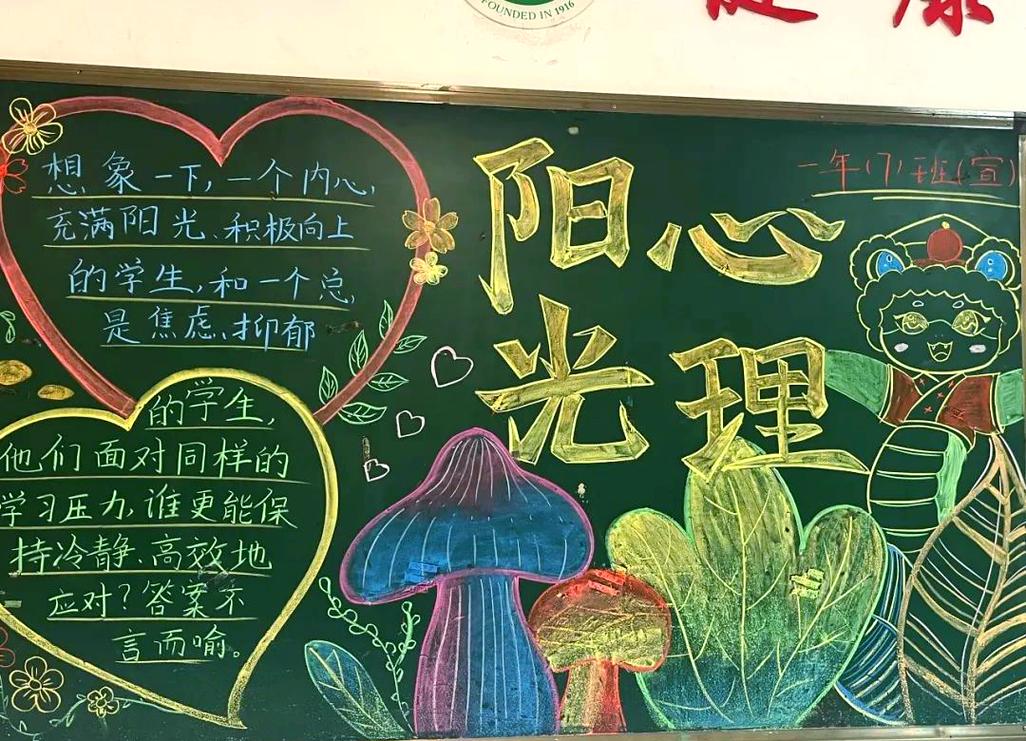 FOUNDED IN 1916
健康
一年(7)班(宣)
阳光
心理
想象一下,一个内心,
充满阳光、积极向上
的学生,和一个总,
是焦虑、抑郁
的学生,
他们面对同样的
学习压力,谁更能保
持冷静、高效地
应对?答案不
言而喻。